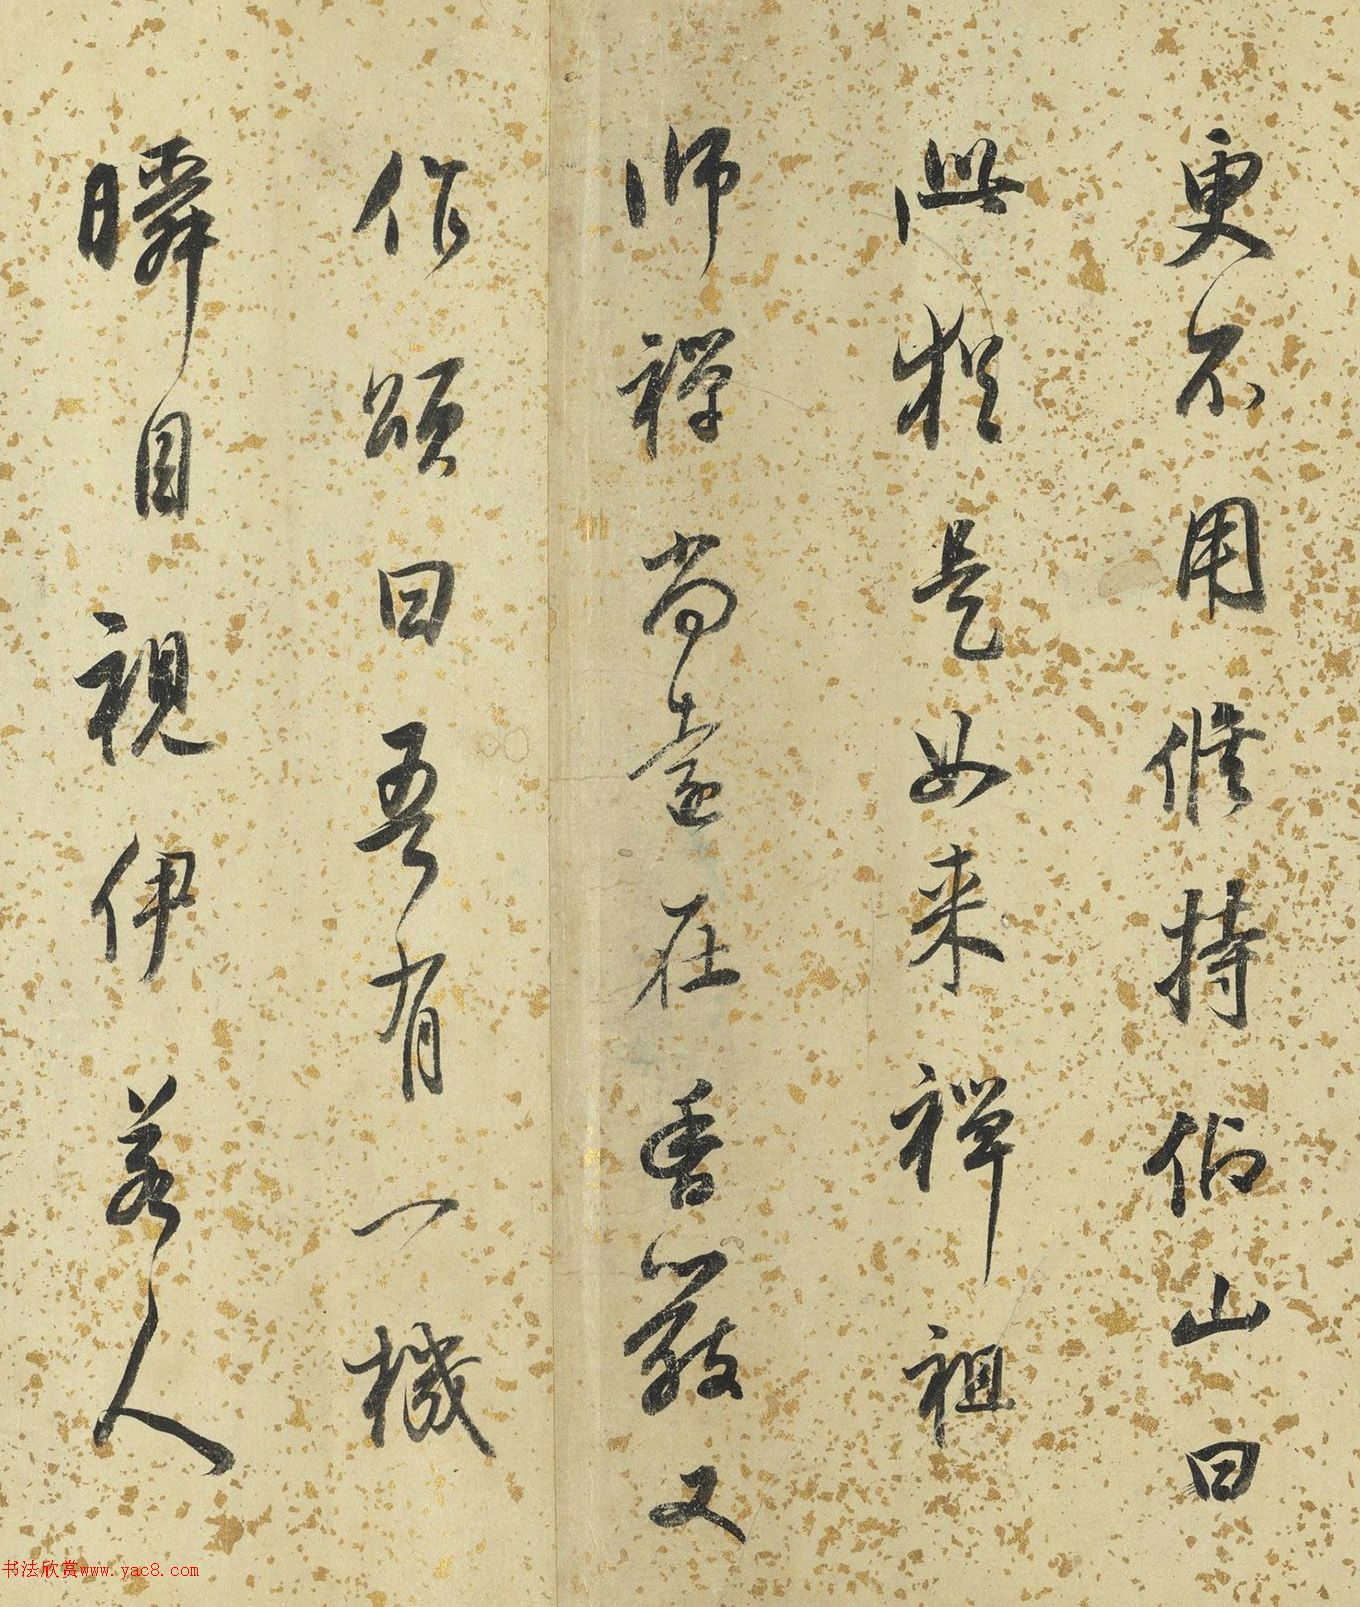 更不用修持仰山曰
此猶是如来禅祖
师禅尚遠在香嚴又
作頌曰吾有一機
瞬目視伊若人
书法欣赏www.yac8.com